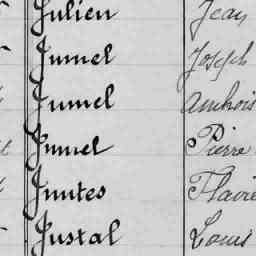 Julien Jean
Jumel Joseph
Jumel Ambrois
Jumel Pierre
Juutes Flavie
Justal Louis